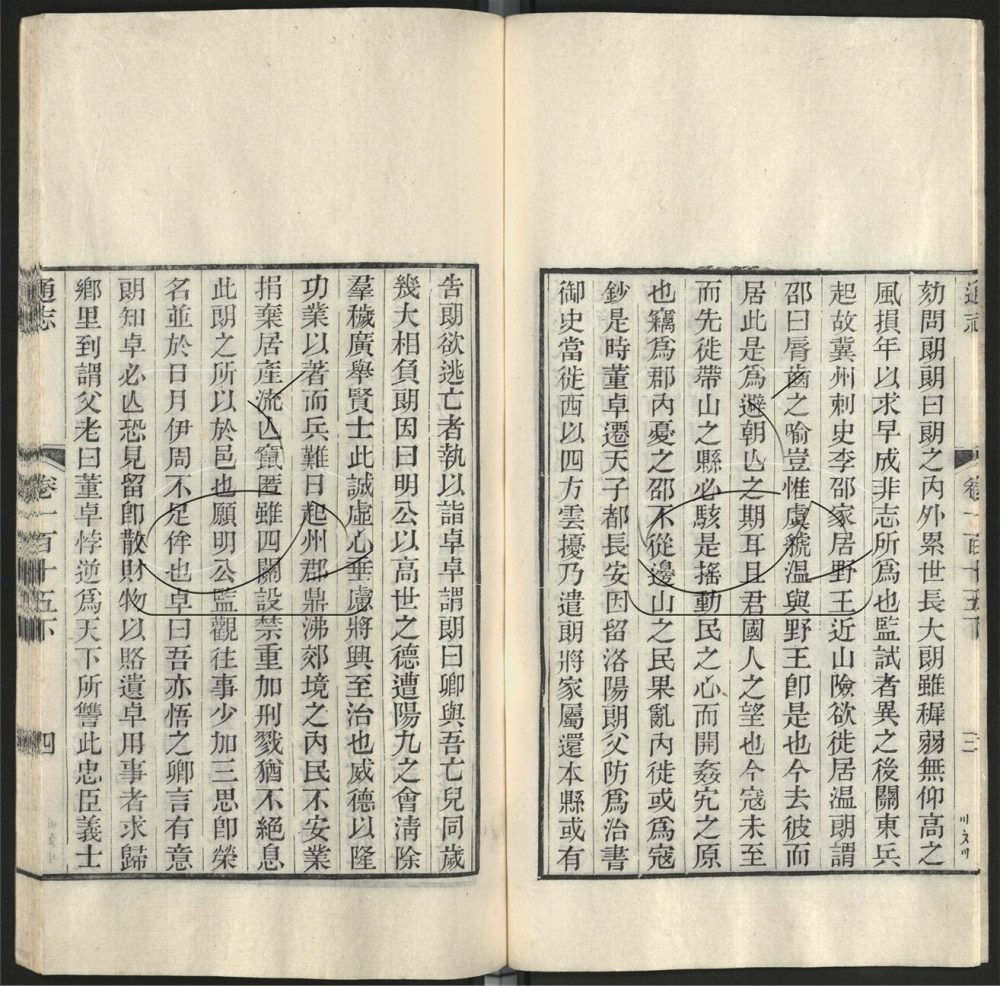 通志
卷一百十五下
三
劾問朗朗曰朗之內外累世長大朗雖稺弱無仰高之
風損年以求早成非志所爲也監試者異之後關東兵
起故冀州刺史李邵家居野王近山險欲徙居温朗謂
邵曰脣齒之喻豈惟虞虢温與野王卽是也今去彼而
居此是爲避朝亾之期耳且君國人之望也今寇未至
而先徙帶山之縣必駭是搖動民之心而開姦宄之原
也竊爲郡內憂之邵不從邊山之民果亂內徙或爲寇
鈔是時董卓遷天子都長安因留洛陽朗父防爲治書
御史當徙西以四方雲擾乃遣朗將家屬還本縣或有
告朗欲逃亡者執以詣卓卓謂朗曰卿與吾亡兒同歲
幾大相負朗因曰明公以高世之德遭陽九之會清除
羣穢廣舉賢士此誠虛心垂慮將興至治也威德以隆
功業以著而兵難日起州郡鼎沸郊境之內民不安業
捐棄居產流亾竄匿雖四關設禁重加刑戮猶不絕息
此朗之所以於邑也願明公監觀往事少加三思卽榮
名並於日月伊周不足侔也卓曰吾亦悟之卿言有意
朗知卓必亾恐見留卽散財物以賂遺卓用事者求歸
鄉里到謂父老曰董卓悖逆爲天下所讐此忠臣義士
通志
卷一百十五下
四